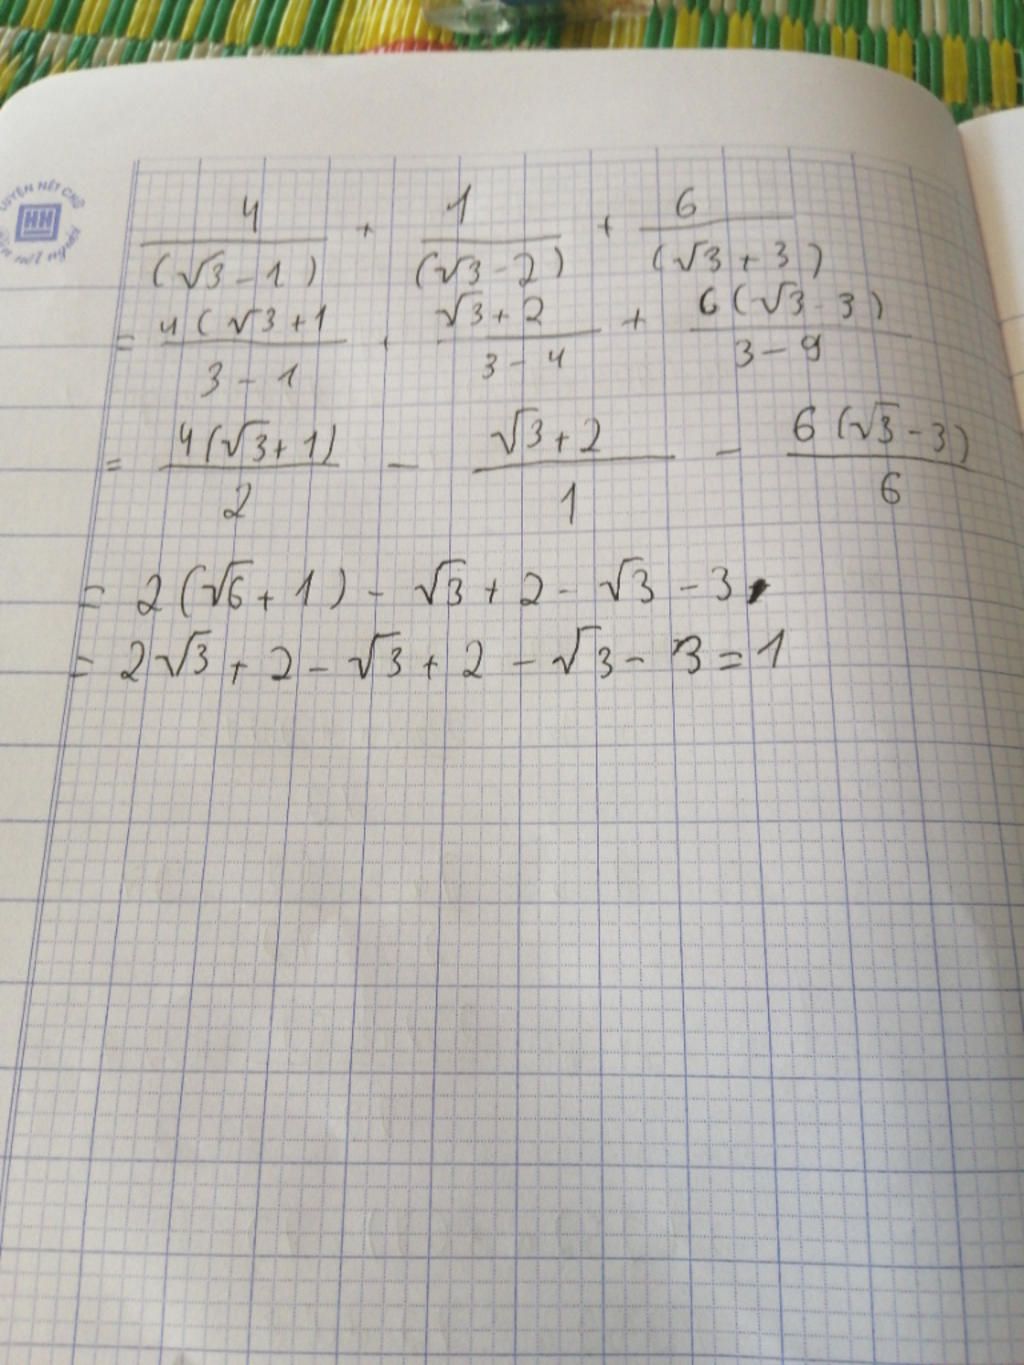 LUYỆN NÉT CHỮ
HN
rèn nét người
4/(√3 - 1) + 1/(√3 - 2) + 6/(√3 + 3)
= 4(√3 + 1/3 - 1 + √3 + 2/3 - 4 + 6(√3 - 3)/3 - 9
= 4(√3 + 1)/2 - √3 + 2/1 - 6(√3 - 3)/6
= 2(√6 + 1) - √3 + 2 - √3 - 3
= 2√3 + 2 - √3 + 2 - √3 - 3 = 1